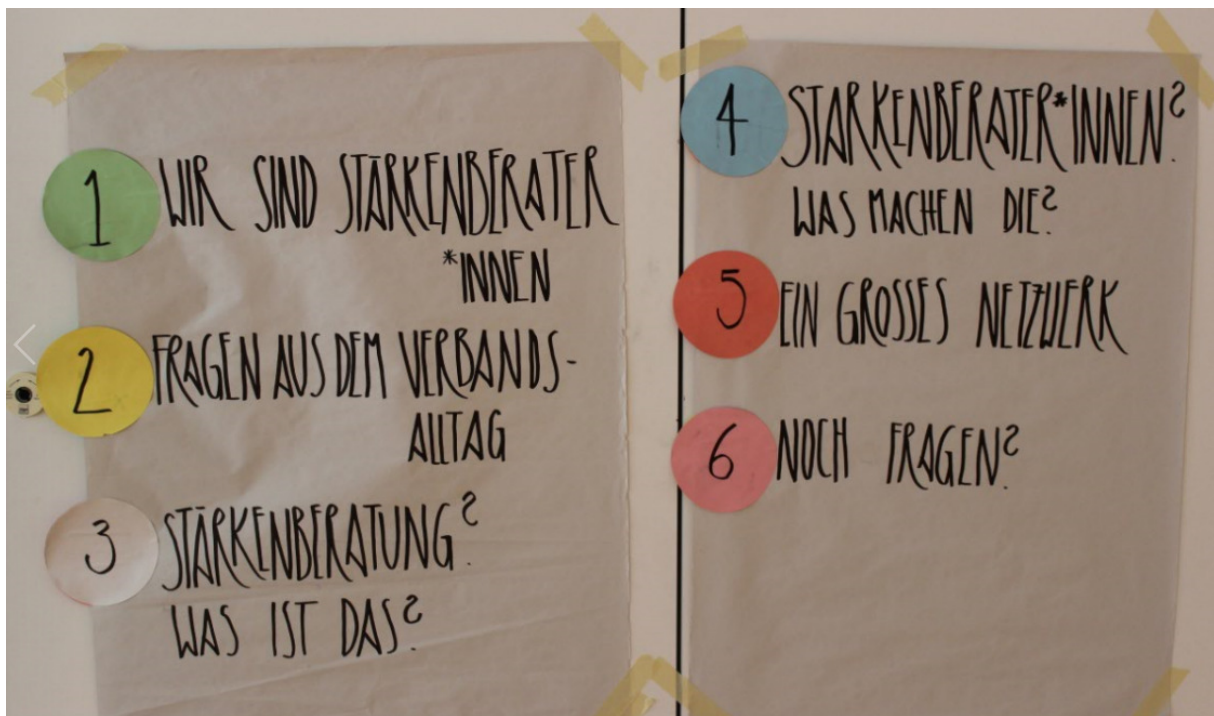 1 WIR SIND STÄRKENBERATER
*INNEN
2 FRAGEN AUS DEM VERBANDS-
ALLTAG
3 STÄRKENBERATUNG?
WAS IST DAS?
4 STARKENBERATER*INNEN?
WAS MACHEN DIE?
5 EIN GROSSES NETZWERK
6 NOCH FRAGEN?